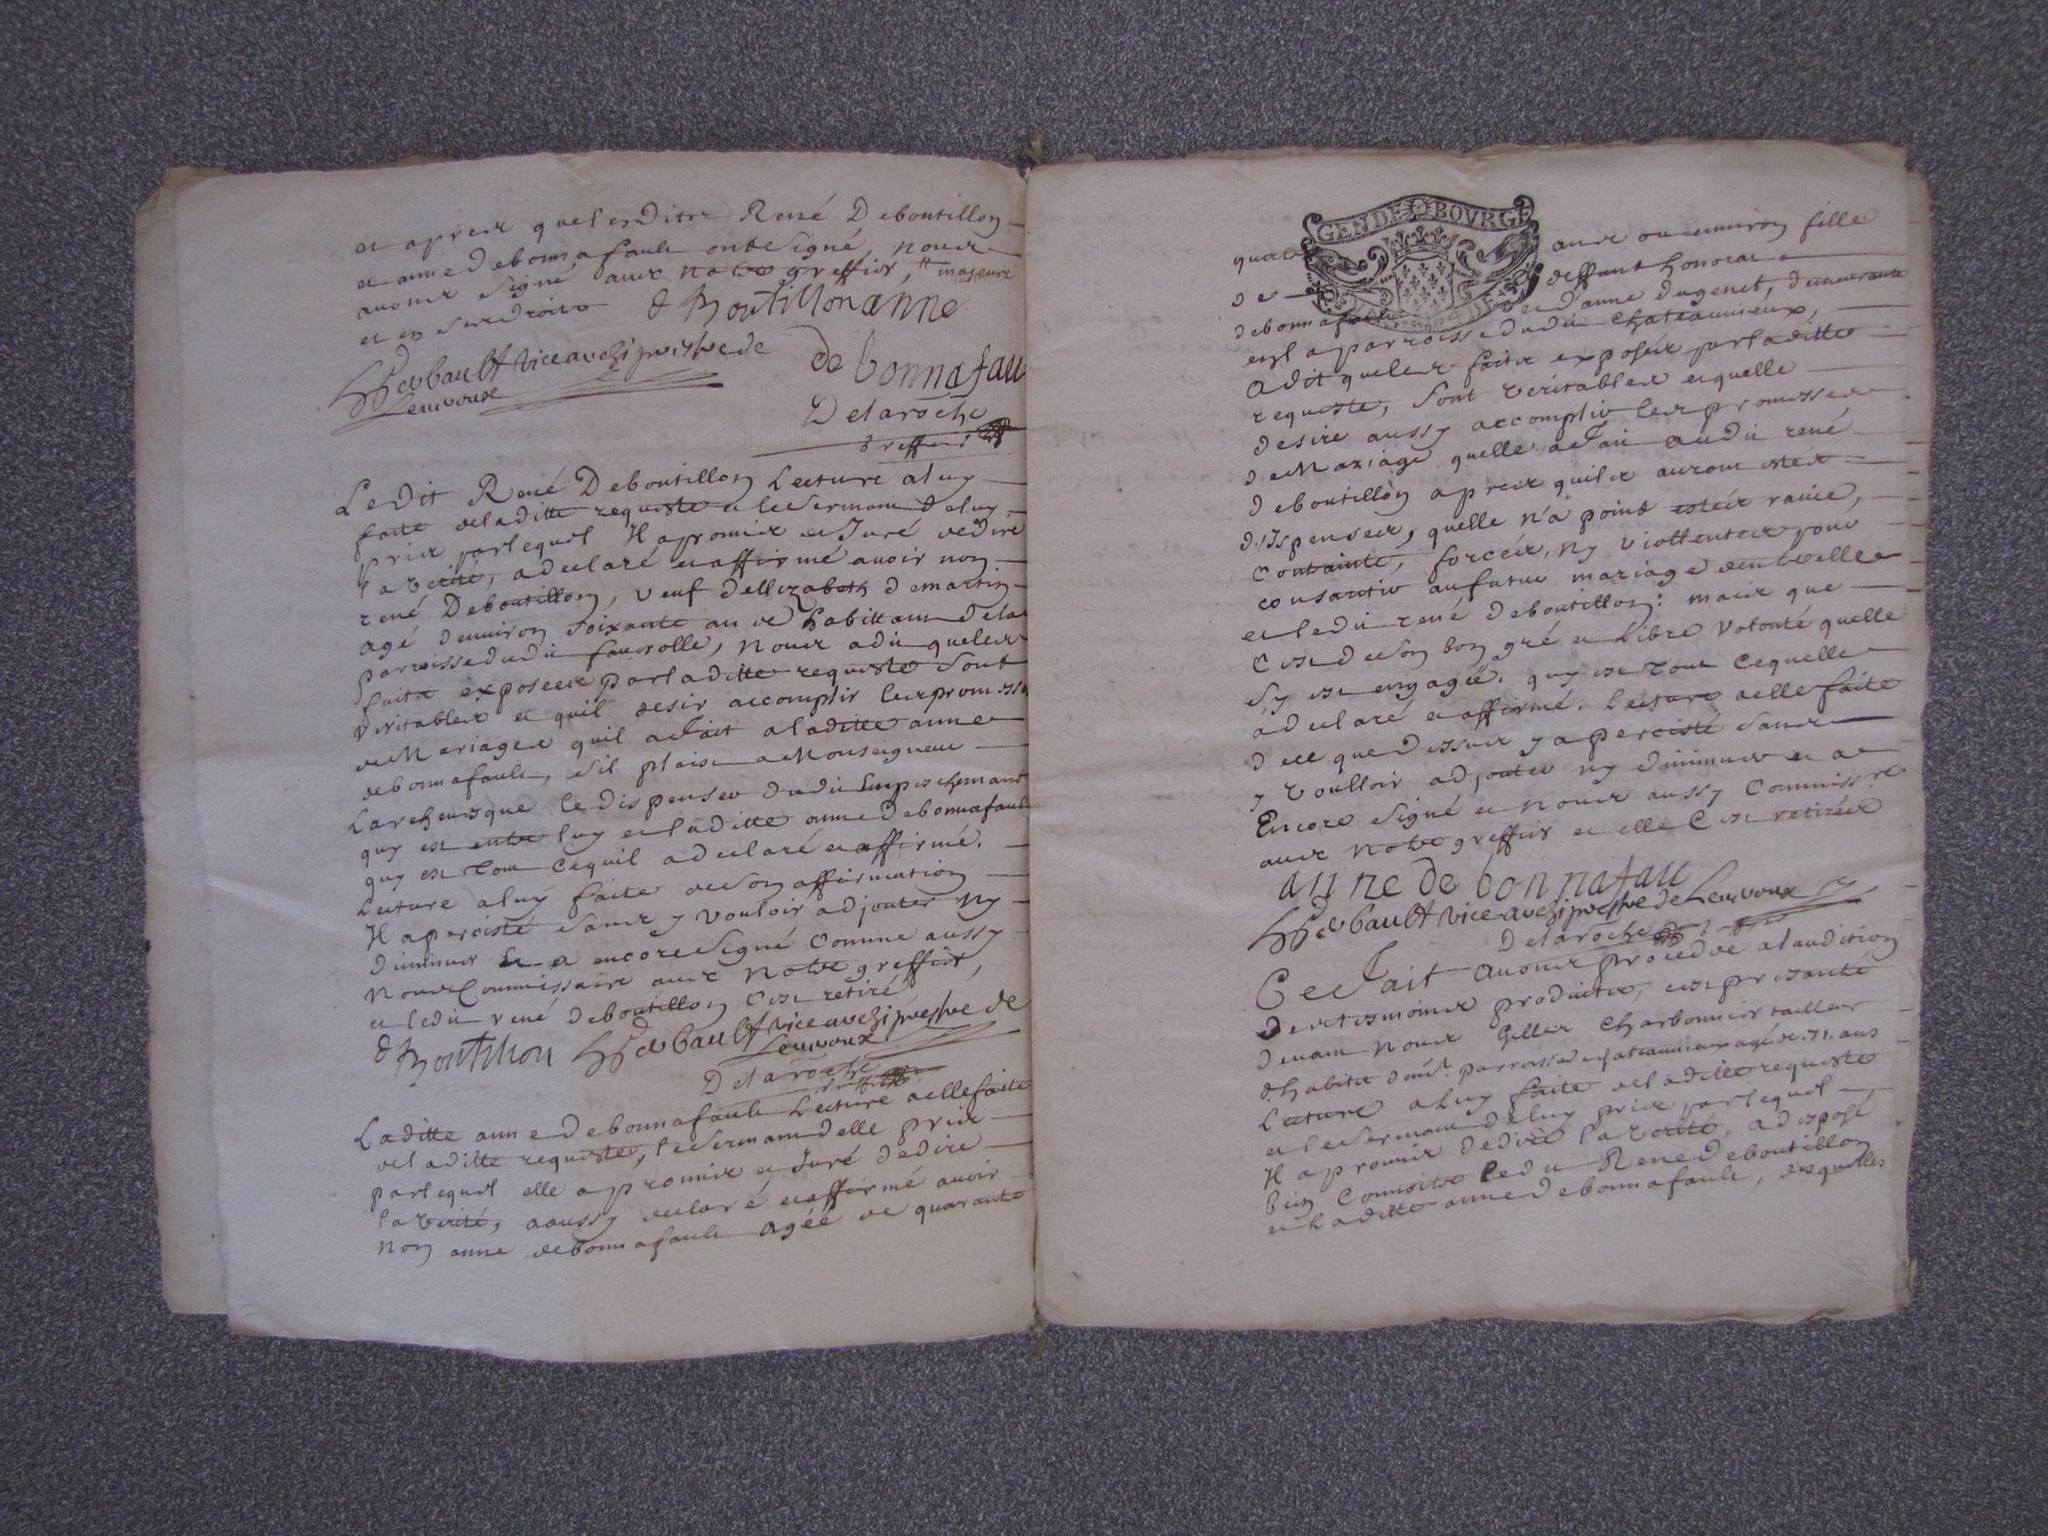 et apres que lesdites René Deboutillon
et anne debonnafault ont signé, nous
avons signé avec notre greffier, # majeure
et en ses droits
d Boutillon anne
de bonnafau
Hebault vice archiprestre de
Leuroux
Delaroche
Greffier
Ledit René Deboutillon Lecture a luy
faite de laditte requeste et le serment de luy
pris par lequel Il a promis et Juré de dire
la verité, a declaré et affirmé avoir non
rené Deboutillon, veuf d'ellizabeth demartin
agé d'environ soixante an et habittant de la
parroisse dudit faverolle, nous a dit que les
faits exposees par laditte requeste sont
veritables et quil desir accomplir les promesses
de Mariage quil a fait a laditte anne
debonnafault, s'il plaist a Monseigneur
Larchevesque le dispenser dudit Empeschemant
quy est entre luy et laditte anne debonnafault
quy est tout ce quil a declaré et affirmé.
Lecture a luy faite de son affirmation
Il a percisté sans y vouloir adjouter ny
diminuer Et a encore signé comme aussy
nous Commissaire avec notre greffier,
et ledit rené deboutillon s'est retiré
d Boutillon Hebault vice archiprestre de
Leuroux
Delaroche
greffier
Laditte anne debonnafault Lecture a elle faite
de laditte requeste, le serment d'elle pris
par lequel elle a promis et Juré de dire
la verité, a aussy declaré et affirmé avoir
non anne debonnafault agéé de quarante
GEN DE BOVRGE
quatre ans ou environ fille
de deffunt honorat
debonnafault et d'anne dugenet, demeurante
en la parroisse dudit chateauvieux,
a dit que les faits exposés par laditte
requeste, sont veritables et quelle
desire aussy accomplir les promesses
de Mariage quelle a fait audit rené
deboutillon apres quils auront estés
dispenser, quelle n'a point estéé ravie,
Contrainte, forcéé, ny viollentee pour
consantir au futur mariage d'entrelle
et ledit rené deboutillon: mais que
C'est de son bon gré et Libre volonté quelle
s'y est engagéé. quy est tout ce quelle
a declaré et affirmé. Lecture a elle faite
de ce que dessus y a percisté sans
y voulloir adjouter ny diminuer et a
Encore signé et nous aussy Commiss.re
avec notre greffier et elle s'est retiréé
anne de bonnafau
Hebault vice archiprestre de Leuroux
Delaroche
Ce Fait avons procedé a l'audition
des tesmoins produits, est presanté
devant nous Gilles Charbonnier tailleur
d'habits dem.t parroisse de chateauvieux agé de .71. ans
Lecture a luy faite de laditte requeste
et le serment de luy pris par lequel
Il a promis de dire la verité, a disposé
bien Connoitre ledit René deboutillon
et Laditte anne debonnafault, desquelles